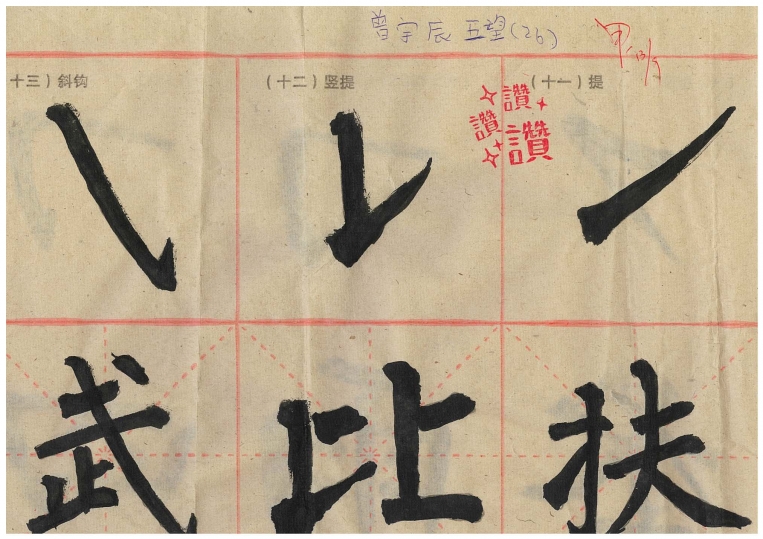 曾宇辰 五望(26)
甲 13/5
(十一)提
(十二)竖提
十三)斜钩
讚
讚
讚
扶
比
武